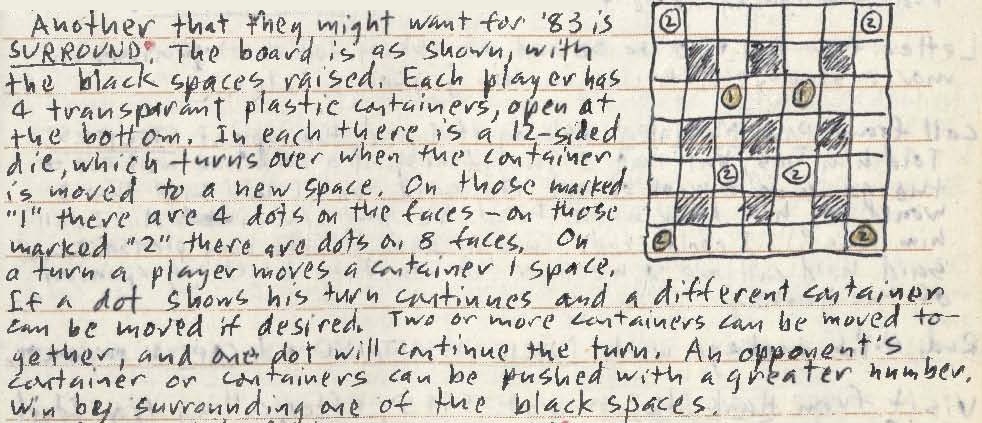 Another that they might want for '83 is
SURROUND. The board is as shown, with
the black spaces raised. Each player has
4 transparant plastic containers, open at
the bottom. In each there is a 12-sided
die, which turns over when the container
is moved to a new space. On those marked
"1" there are 4 dots on the faces – on those
marked "2" there are dots on 8 faces. On
a turn a player moves a container 1 space.
If a dot shows his turn continues and a different container
can be moved if desired. Two or more containers can be moved to-
gether, and one dot will continue the turn. An opponent's
container or containers can be pushed with a greater number.
Win by surrounding one of the black spaces.
2 2
1 1
2 2
2 2